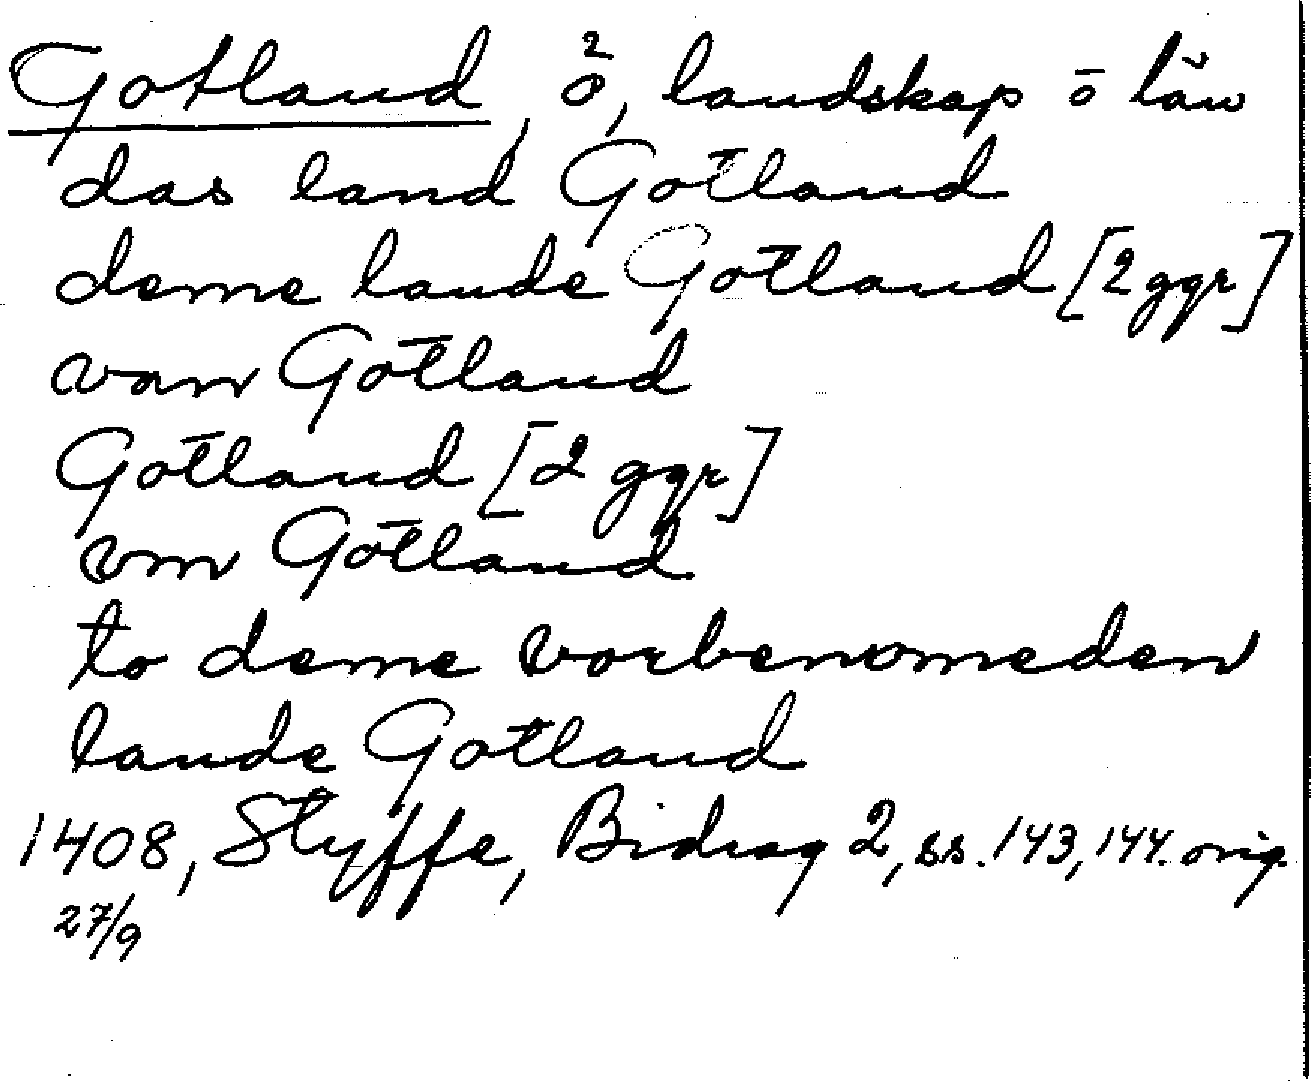 Gotland, ö, landskap o län
das land Gotland
deme lande Gotland [2 ggr]
van Gotland
Gotland [2 ggr]
vm Gotland
to deme vorbenomeden
lande Gotland
1408, Styffe, Bidrag 2, ss. 143, 144. orig.
27/9